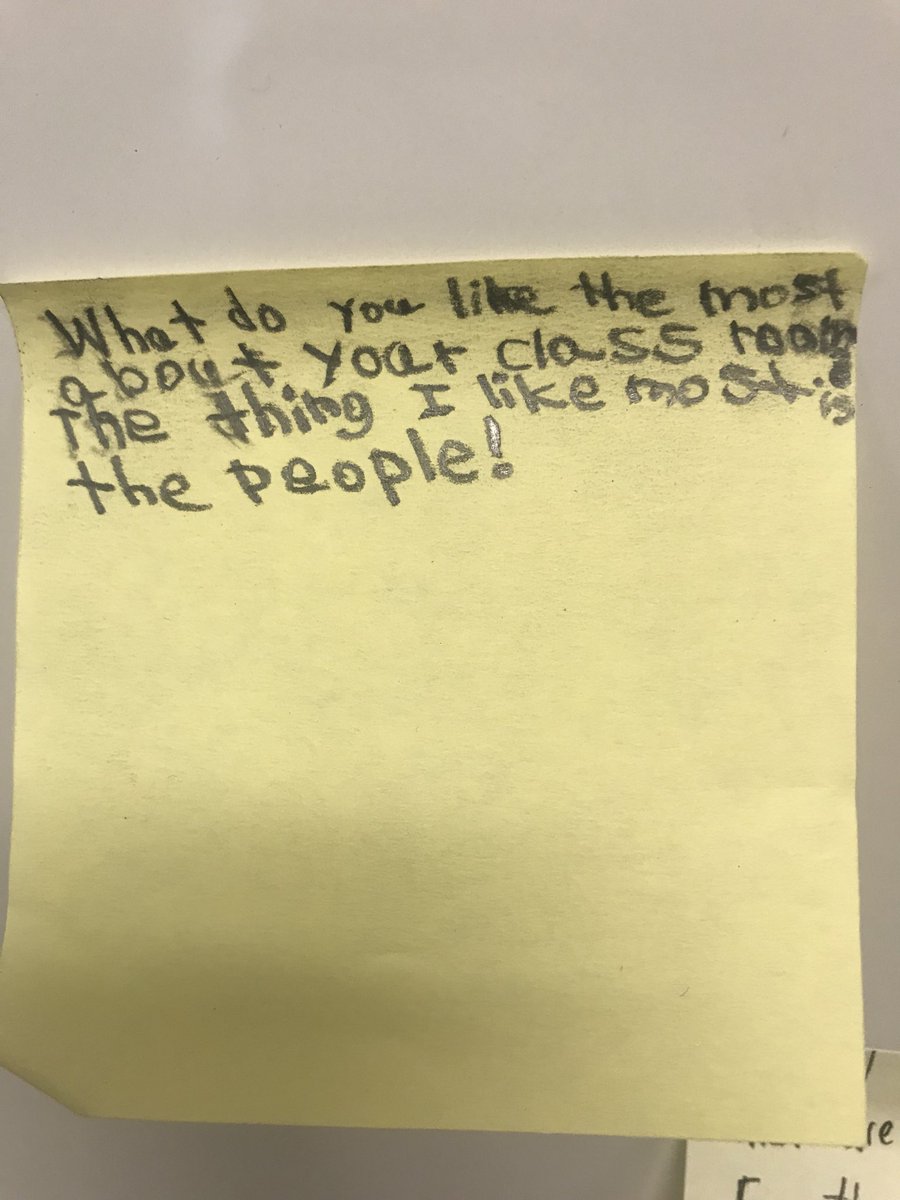 What do you like the most
about your class room
the thing I like most is
the people!
re